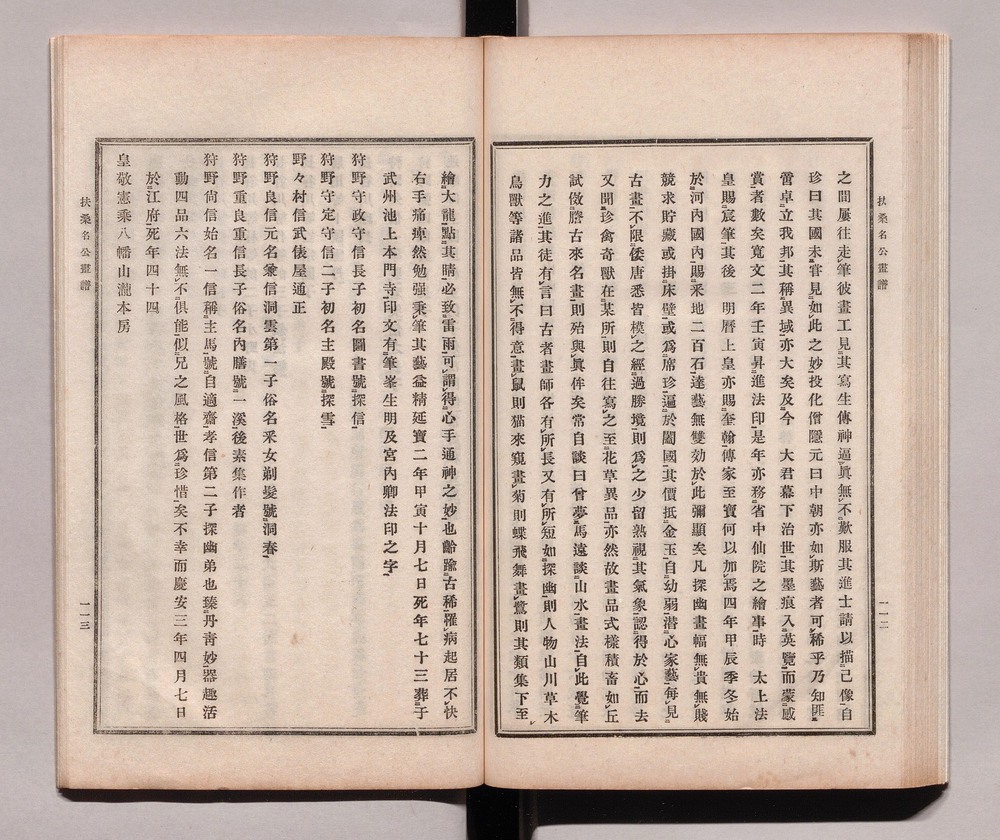 扶桑名公畫譜
一一二
之間屢往走筆彼畫工見其寫生傳神逼眞無不歎服其進士請以描己像自
珍曰其國未嘗見如此之妙投化僧隱元曰中朝亦如斯藝者可稀乎乃知匪
啻卓立我邦其稱異域亦大矣及今 大君幕下治世其墨痕入英覽而蒙感
賞者數矣寬文二年壬寅昇進法印是年亦務省中仙院之繪事時 太上法
皇賜宸筆其後 明曆上皇亦賜奎翰傳家至寶何以加焉四年甲辰季冬始
於河內國內賜釆地二百石達藝無雙効於此彌顯矣凡探幽畫幅無貴無賤
競求貯藏或掛床壁或爲席珍逼於闔國其價抵金玉自幼弱潛心家藝每見
古畫不限倭唐悉皆模之經過勝境則爲之少留熟視其氣象認得於心而去
又聞珍禽奇獸在某所則自往寫之至花草異品亦然故畫品式樣積畜如丘
試倣謄古來名畫則殆與眞侔矣常自談曰曾夢馬遠談山水畫法自此覺筆
力之進其徒有言曰古者畫師各有所長又有所短如探幽則人物山川草木
鳥獸等諸品皆無不得意畫鼠則猫來窺畫菊則蝶飛舞畫鷺則其類集下至
繪大龍點其睛必致雷雨可謂得心手通神之妙也齡踰古稀罹病起居不快
右手痛痺然勉强秉筆其藝益精延寶二年甲寅十月七日死年七十三葬于
武州池上本門寺印文有筆峯生明及宮內卿法印之字
狩野守政守信長子初名圖書號探信
狩野守定守信二子初名主殿號探雪
野々村信武俵屋通正
狩野良信元名象信洞雲第一子俗名釆女剃髮號洞春
狩野重良重信長子俗名內膳號一溪後素集作者
狩野尙信始名一信稱主馬號自適齋孝信第二子探幽弟也臻丹靑妙器趣活
動四品六法無不俱能似兄之風格世爲珍惜矣不幸而慶安三年四月七日
於江府死年四十四
皇敬憲乘八幡山瀧本房
扶桑名公畫譜
一一三